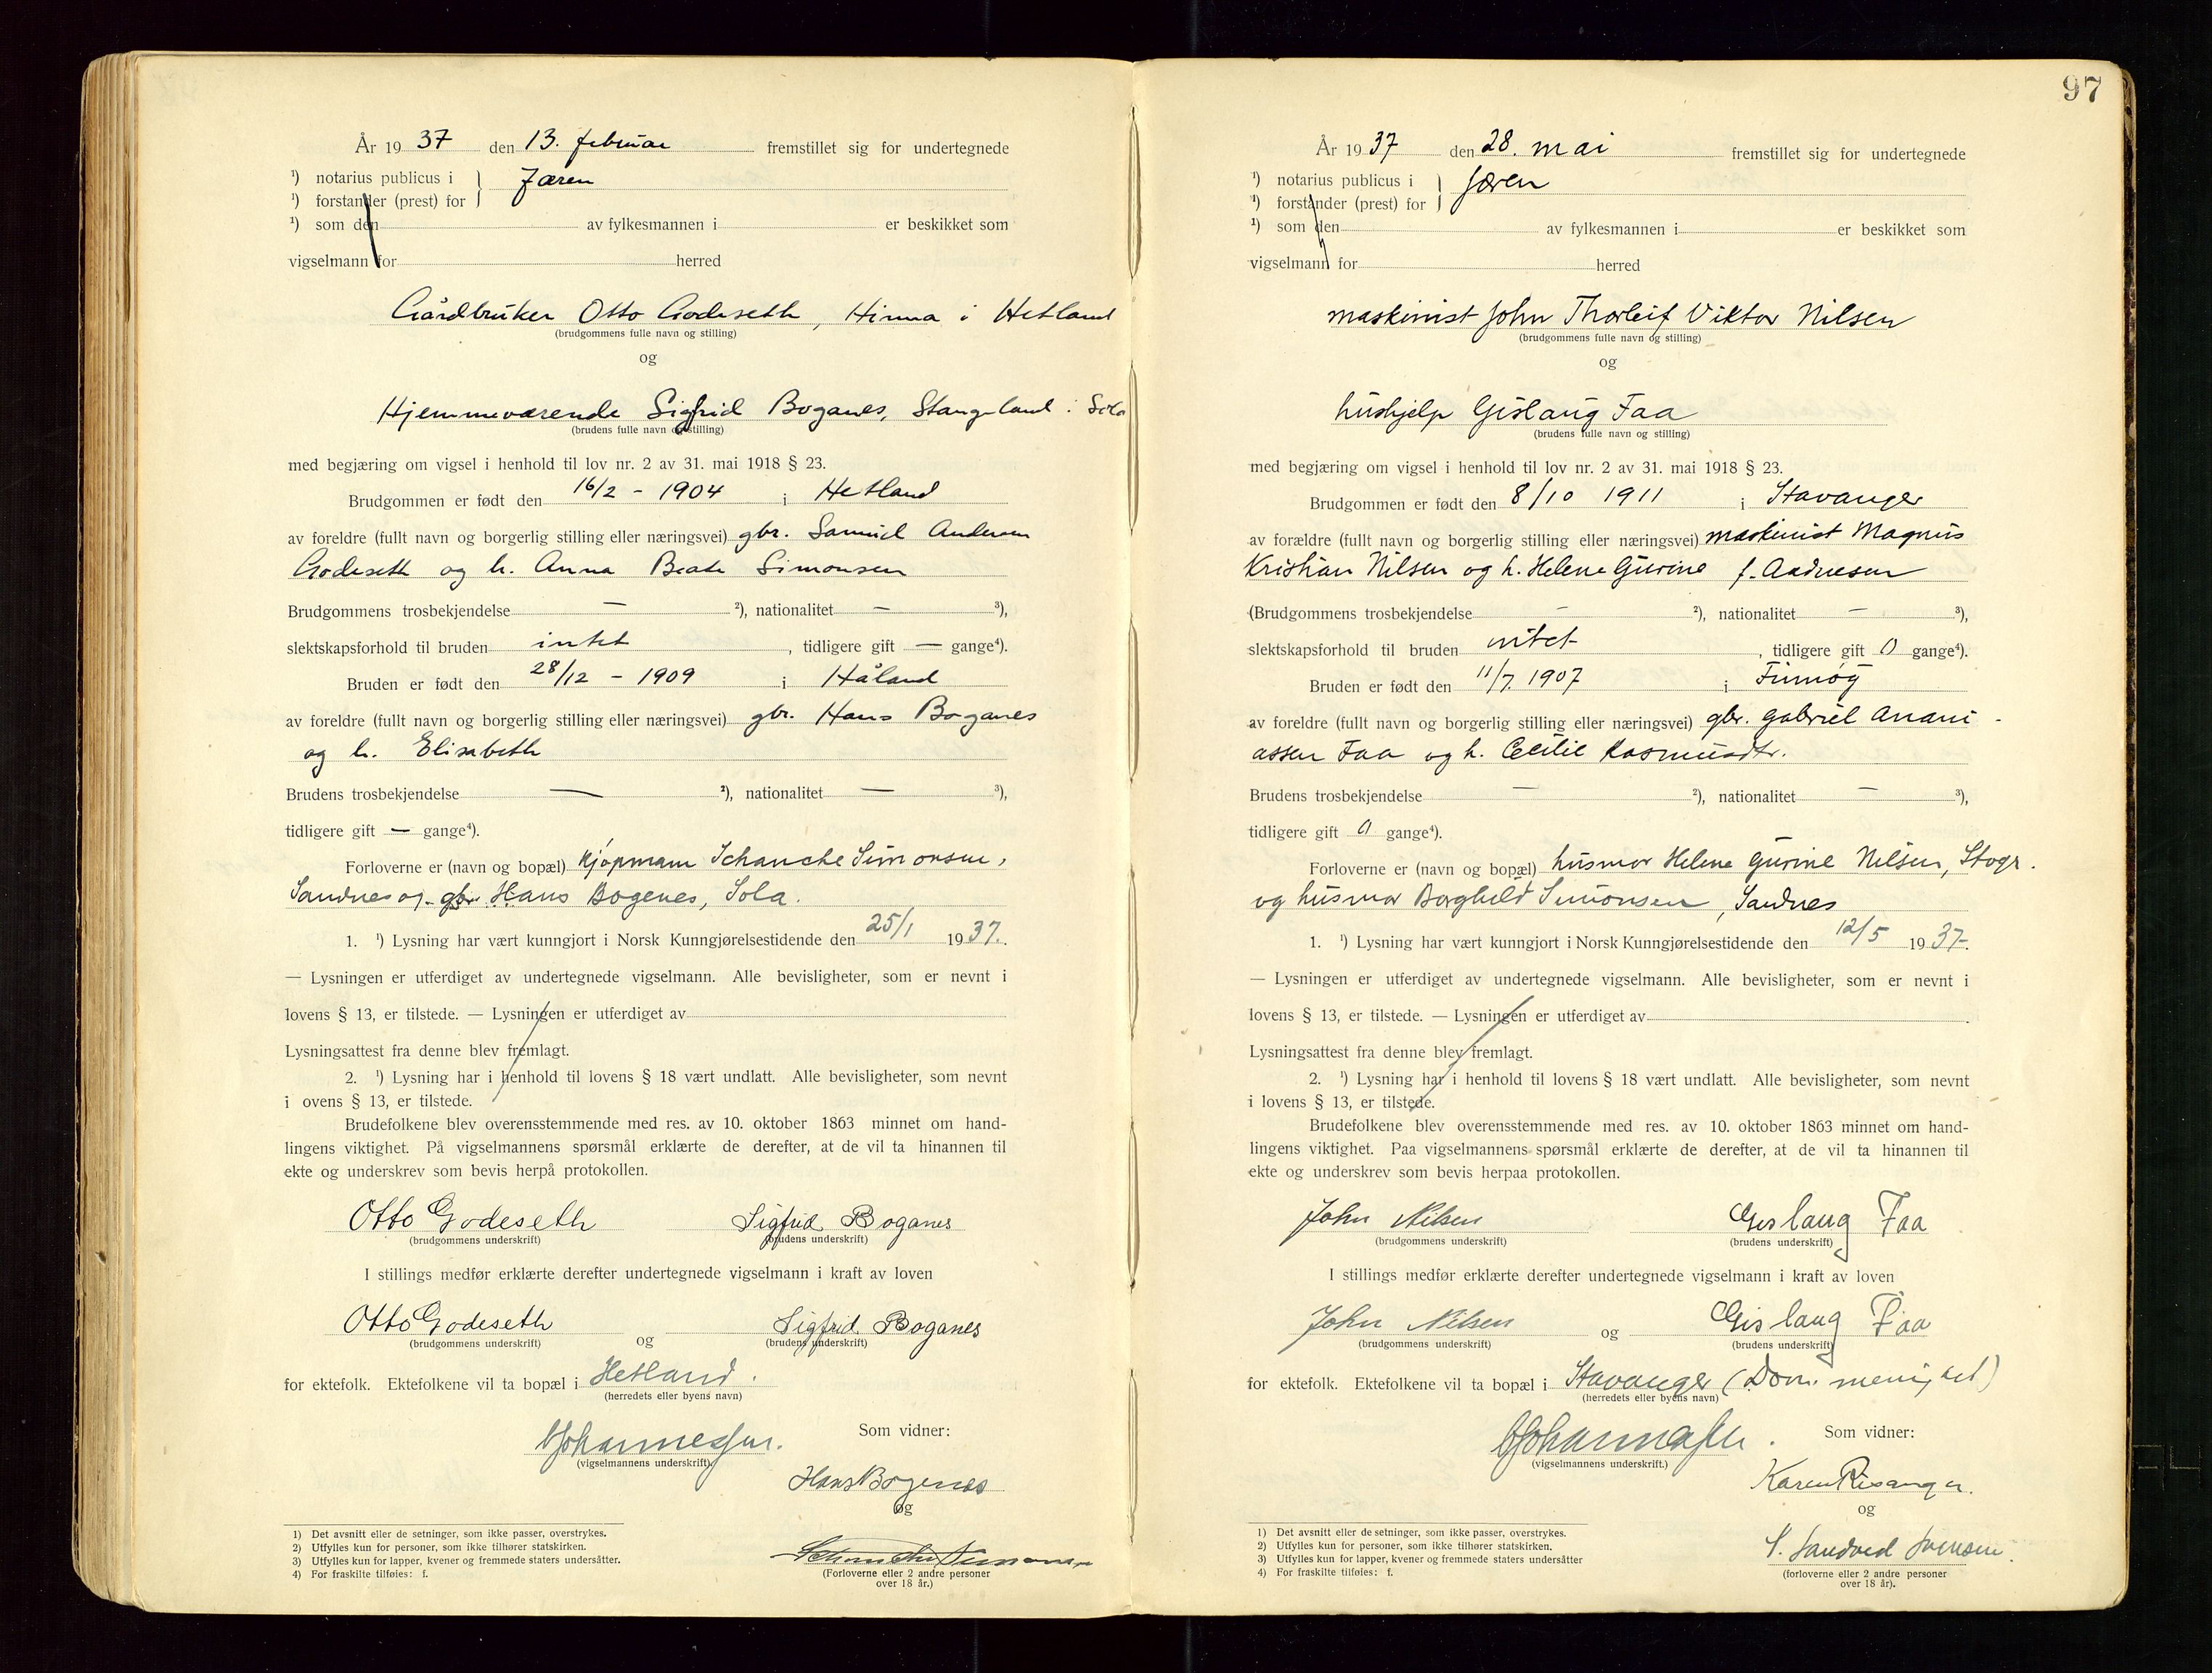 År 1937 den 13. februar fremstillet sig for undertegnede
¹) notarius publicus i } Jæren
¹) forstander (prest) for
¹) som den av fylkesmannen i er beskikket som
vigselmann for herred
Gårdbruker Otto Godeseth, Hinna i Hetland
(brudgommens fulle navn og stilling)
og
Hjemmeværende Sigfrid Boganes, Stangeland i Sola
(brudens fulle navn og stilling)
med begjæring om vigsel i henhold til lov nr. 2 av 31. mai 1918 § 23.
Brudgommen er født den 16/2 - 1904 i Hetland
av foreldre (fullt navn og borgerlig stilling eller næringsvei) gbr. Samuel Andersen
Godeseth og h. Anna Beate Simonsen
Brudgommens trosbekjendelse — ²), nationalitet — ³),
slektskapsforhold til bruden intet, tidligere gift — gange⁴).
Bruden er født den 28/12 - 1909 i Håland
av foreldre (fullt navn og borgerlig stilling eller næringsvei) gbr. Hans Boganes
og h. Elisabeth
Brudens trosbekjendelse — ²), nationalitet — ³),
tidligere gift — gange⁴).
Forloverne er (navn og bopæl) kjøpmann Schanche Simonsen,
Sandnes og gbr. Hans Bogenes, Sola.
1. ¹) Lysning har vært kunngjort i Norsk Kunngjørelsestidende den 25/1 1937.
— Lysningen er utferdiget av undertegnede vigselmann. Alle bevisligheter, som er nevnt i
lovens § 13, er tilstede. — Lysningen er utferdiget av
Lysningsattest fra denne blev fremlagt.
2. ¹) Lysning har i henhold til lovens § 18 vært undlatt. Alle bevisligheter, som nevnt
i ovens § 13, er tilstede.
Brudefolkene blev overensstemmende med res. av 10. oktober 1863 minnet om hand-
lingens viktighet. På vigselmannens spørsmål erklærte de derefter, at de vil ta hinannen til
ekte og underskrev som bevis herpå protokollen.
Otto Godeseth Sigfrid Boganes
(brudgommens underskrift) (brudens underskrift)
I stillings medfør erklærte derefter undertegnede vigselmann i kraft av loven
Otto Godeseth og Sigfrid Boganes
(brudgommens underskrift) (brudens underskrift)
for ektefolk. Ektefolkene vil ta bopæl i Hetland.
(herredets eller byens navn)
Som vidner:
(vigselmannens underskrift)
Hans Bogenes
og
Schanche Simonsen
(Forloverne eller 2 andre personer
over 18 år.)
1) Det avsnitt eller de setninger, som ikke passer, overstrykes.
2) Utfylles kun for personer, som ikke tilhører statskirken.
3) Utfylles kun for lapper, kvener og fremmede staters undersåtter.
4) For fraskilte tilføies: f.
97
År 1937 den 28. mai fremstillet sig for undertegnede
¹) notarius publicus i } Jæren
¹) forstander (prest) for
¹) som den av fylkesmannen i er beskikket som
vigselmann for herred
maskinist John Thorleif Viktor Nilsen
(brudgommens fulle navn og stilling)
og
hushjelp Gislaug Faa
(brudens fulle navn og stilling)
med begjæring om vigsel i henhold til lov nr. 2 av 31. mai 1918 § 23.
Brudgommen er født den 8/10 1911 i Stavanger
av forældre (fullt navn og borgerlig stilling eller næringsvei) maskinist Magnus
Kristian Nilsen og h. Helene Gurine f. Aadnesen
(Brudgommens trosbekjendelse — ²), nationalitet — ³),
slektskapsforhold til bruden intet, tidligere gift 0 gange⁴).
Bruden er født den 11/7. 1907 i Finnøy
av foreldre (fullt navn og borgerlig stilling eller næringsvei) gbr. Gabriel Anani-
assen Faa og h. Cecilie Rasmusdtr.
Brudens trosbekjendelse — ²), nationalitet — ³),
tidligere gift 0 gange⁴).
Forloverne er (navn og bopæl) husmor Helene Gurine Nilsen, Stvgr.
og husmor Borghild Simonsen, Sandnes
1. ¹) Lysning har vært kunngjort i Norsk Kunngjørelsestidende den 12/5 1937.
— Lysningen er utferdiget av undertegnede vigselmann. Alle bevisligheter, som er nevnt i
lovens § 13, er tilstede. — Lysningen er utferdiget av
Lysningsattest fra denne blev fremlagt.
2. ¹) Lysning har i henhold til lovens § 18 vært undlatt. Alle bevisligheter, som nevnt
i lovens § 13, er tilstede.
Brudefolkene blev overensstemmende med res. av 10. oktober 1863 minnet om hand-
lingens viktighet. Paa vigselmannens spørsmål erklærte de derefter, at de vil ta hinannen til
ekte og underskrev som bevis herpaa protokollen.
John Nilsen Gislaug Faa
(brudgommens underskrift) (brudens underskrift)
I stillings medfør erklærte derefter undertegnede vigselmann i kraft av loven
John Nilsen og Gislaug Faa
(brudgommens underskrift) (brudens underskrift)
for ektefolk. Ektefolkene vil ta bopæl i Stavanger (Dom. menighet)
(herredets eller byens navn)
Som vidner:
(vigselmannens underskrift.)
Karen Risanger.
og
S. Sandved Svensen.
(forloverne eller 2 andre personer
over 18 år).
1) Det avsnitt eller de setninger, som ikke passer, overstrykes.
2) Utfylles kun for personer, som ikke tilhører statskirken.
3) Utfylles kun for lapper, kvener og fremmede staters undersåtter
4) For fraskilte tilføies: f.